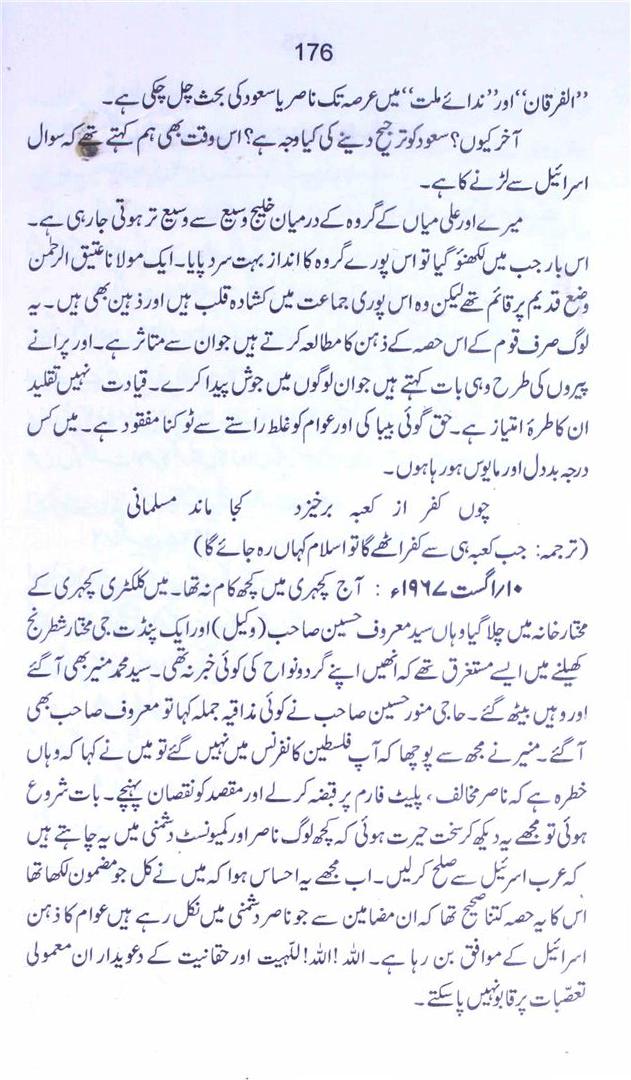 176
”الفرقان“ اور ”ندائے ملت“ میں عرصہ تک ناصر یا سعود کی بحث چل چکی ہے۔
آخر کیوں؟ سعود کو ترجیح دینے کی کیا وجہ ہے؟ اس وقت بھی ہم کہتے تھے کہ سوال
اسرائیل سے لڑنے کا ہے۔
میرے اور علی میاں کے گروہ کے درمیان خلیج وسیع سے وسیع تر ہوتی جارہی ہے۔
اس بار جب میں لکھنؤ گیا تو اس پورے گروہ کا انداز بہت سرد پایا۔ ایک مولانا عتیق الرحمٰن
وضع قدیم پر قائم تھے لیکن وہ اس پوری جماعت میں کشادہ قلب ہیں اور ذہین بھی ہیں۔ یہ
لوگ صرف قوم کے اس حصہ کے ذہن کا مطالعہ کرتے ہیں جو ان سے متاثر ہے۔ اور پرانے
پیروں کی طرح وہی بات کہتے ہیں جو ان لوگوں میں جوش پیدا کرے۔ قیادت نہیں تقلید
ان کا طرۂ امتیاز ہے۔ حق گوئی بیباکی اور عوام کو غلط راستے سے ٹوکنا مفقود ہے۔ میں کس
درجہ بددل اور مایوس ہورہا ہوں۔
چوں کفر از کعبہ برخیزد کجا ماند مسلمانی
(ترجمہ: جب کعبہ ہی سے کفر اٹھے گا تو اسلام کہاں رہ جائے گا)
۱۰/اگست ۱۹۶۷ء : آج کچہری میں کچھ کام نہ تھا۔ میں کلکٹری کچہری کے
مختار خانہ میں چلا گیا وہاں سید معروف حسین صاحب (وکیل) اور ایک پنڈت جی مختار شطرنج
کھیلنے میں ایسے مستغرق تھے کہ انھیں اپنے گردونواح کی کوئی خبر نہ تھی۔ سید محمد منیر بھی آگئے
اور وہیں بیٹھ گئے۔ حاجی منور حسین صاحب نے کوئی مذاقیہ جملہ کہا تو معروف صاحب بھی
آگئے۔ منیر نے مجھ سے پوچھا کہ آپ فلسطین کانفرنس میں نہیں گئے تو میں نے کہا کہ وہاں
خطرہ ہے کہ ناصر مخالف، پلیٹ فارم پر قبضہ کرلے اور مقصد کو نقصان پہنچے۔ بات شروع
ہوئی تو مجھے یہ دیکھ کر سخت حیرت ہوئی کہ کچھ لوگ ناصر اور کمیونسٹ دشمنی میں یہ چاہتے ہیں
کہ عرب اسرئیل سے صلح کرلیں۔ اب مجھے یہ احساس ہوا کہ میں نے کل جو مضمون لکھا تھا
اس کا یہ حصہ کتنا صحیح تھا کہ ان مضامین سے جو ناصر دشمنی میں نکل رہے ہیں عوام کا ذہن
اسرائیل کے موافق بن رہا ہے۔ اللہ! اللہ! للّٰہیت اور حقانیت کے دعویدار ان معمولی
تعصّبات پر قابو نہیں پاسکتے۔